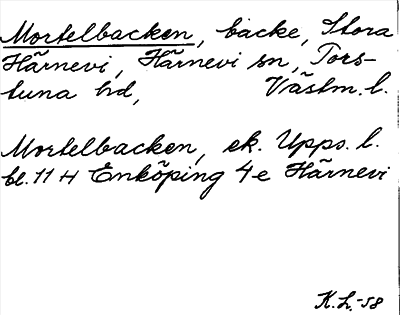 Mortelbacken, backe, Stora
Härnevi, Härnevi sn, Tors-
tuna hd, Västm. l.
Mortelbacken, ek. Upps. l.
bl. 11 H Enköping 4e Härnevi
K.L.-58